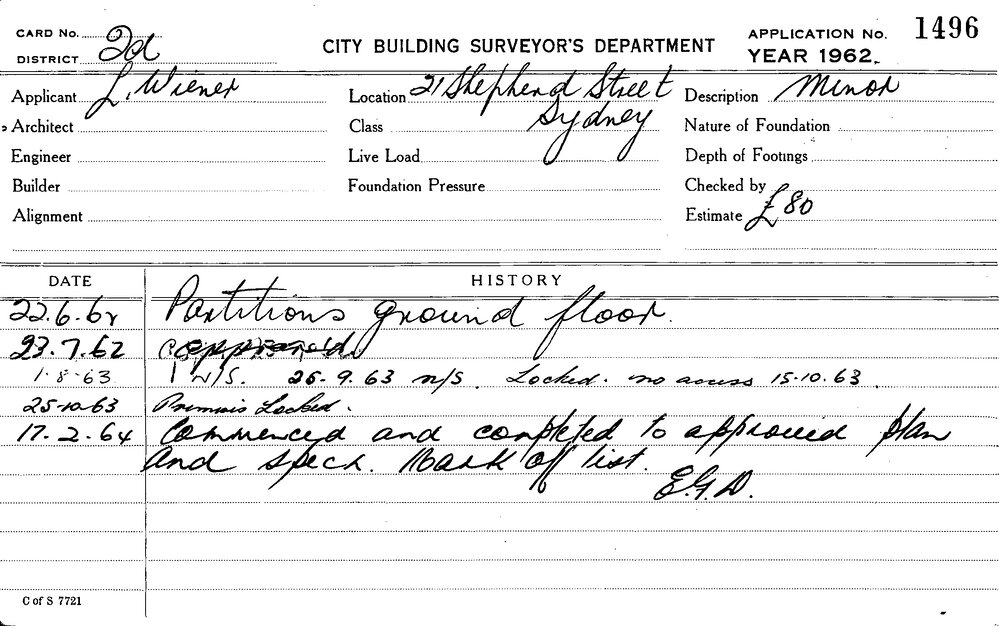 CARD No.
DISTRICT 2d
CITY BUILDING SURVEYOR'S DEPARTMENT
APPLICATION No. 1496
YEAR 1962.
Applicant L. Wiener
Location 21 Shepherd Street
Sydney
Description Minor
Architect
Class
Nature of Foundation
Engineer
Live Load
Depth of Footings
Builder
Foundation Pressure
Checked by
Alignment
Estimate £80
DATE HISTORY
22.6.62 Partitions ground floor.
23.7.62 approved
1.8.63 1 W/S. 26.9.63 n/S. Locked. no access 15.10.63.
25.10.63 Premis Locked.
17.2.64 Commenced and completed to approved plan
and specs. Mark off list.
E.G.D.
C of S 7721